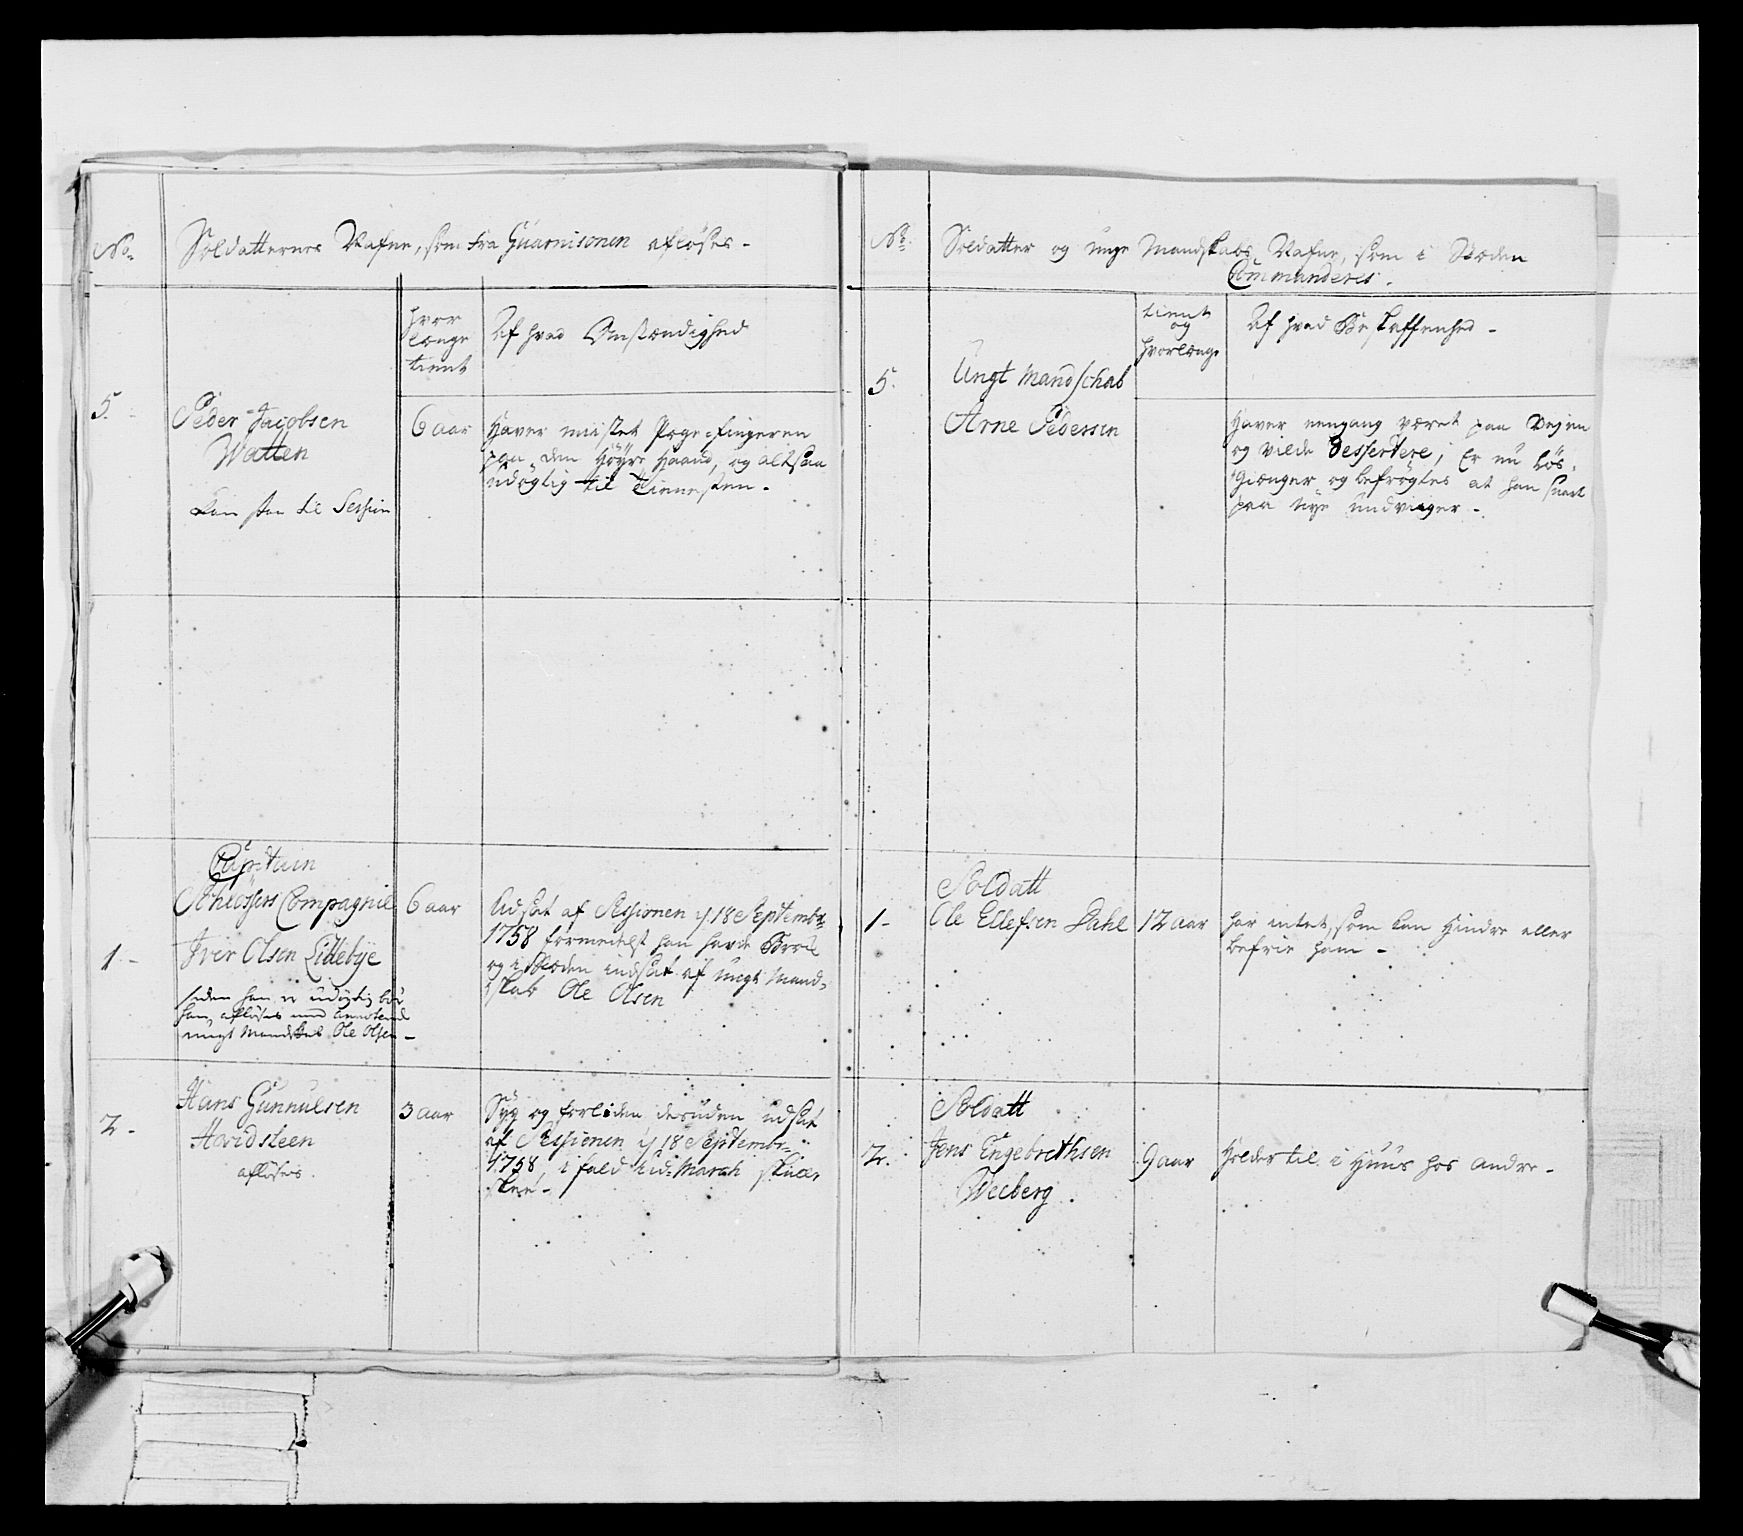 No.
Soldatternes Nafne, som fra Guarnisonen afløses -
hvor
længe
tient
Af hvad Omstændighed
5.
Peder Jacobsen
Watten
kan staa til Session
6 aar
Haver mistet Pege-fingeren
paa den Høyre Haand, og altsaa
udögtig til Tienesten.
Captain
Compagnie
1 -
Iver Olsen Lillebye
siden han er udögtig bör
han afløses med
ungt Mandskab Ole Olsen -
6 aar
Udsat af Sessionen 18 Septembr
1758 formedelst han havde Brok
og i Stæden indsat af ungt Mand-
skab Ole Olsen
2 -
Hans Gunnulsen
Hovidsteen
afløses.
3 aar
Syg og forliden desuden udsat
af Sessionen 18 Septembr
1758, i fald March skulle
skee -
No.
Soldatter og unge Mandskabs Nafne, som i Stæden
Commanderes.
tient
og
hvorlænge
Af hvad Beskaffenhed -
5.
Ungt Mandschab
Arne Pedersen
Haver engang været paa Vejen
og vilde Dessertere; Er nu Lös-
giænger og befrögtes at han snart
paa nye undviger -
Soldatt
1 -
Ole Ellefsen Dahl
12 aar
har intet, som kan hindre eller
befrie ham -
Soldatt
2.
Jens Engebrethsen
Weeberg.
9 aar
Holder til i Huus hos andre -